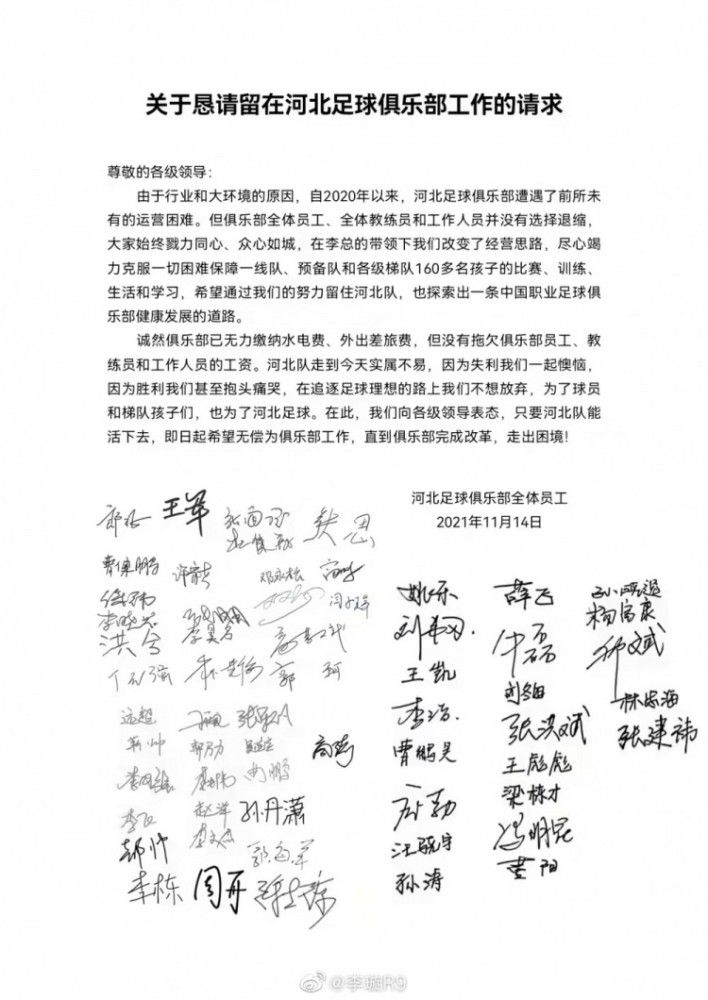 关于恳请留在河北足球俱乐部工作的请求
尊敬的各级领导：
由于行业和大环境的原因，自2020年以来，河北足球俱乐部遭遇了前所未
有的运营困难。但俱乐部全体员工、全体教练员和工作人员并没有选择退缩，
大家始终戮力同心、众心如城，在李总的带领下我们改变了经营思路，尽心竭
力克服一切困难保障一线队、预备队和各级梯队160多名孩子的比赛、训练、
生活和学习，希望通过我们的努力留住河北队，也探索出一条中国职业足球俱
乐部健康发展的道路。
诚然俱乐部已无力缴纳水电费、外出差旅费，但没有拖欠俱乐部员工、教
练员和工作人员的工资。河北队走到今天实属不易，因为失利我们一起懊恼，
因为胜利我们甚至抱头痛哭，在追逐足球理想的路上我们不想放弃，为了球员
和梯队孩子们，也为了河北足球。在此，我们向各级领导表态，只要河北队能
活下去，即日起希望无偿为俱乐部工作，直到俱乐部完成改革，走出困境！
河北足球俱乐部全体员工
2021年11月14日
王军
曹鹏
李昊
洪兮
郭珂
远超
高奇
赵洋
孙丹潇
郝帅
李栋
周开
姚乐
王凯
李浩
曹鹏昊
汪骁宇
孙涛
薛飞
牛磊
刘旭
张洪斌
王彪彪
梁栋才
冯明昆
黄阳
杨富康
林忠海
张建祎
@李璇R9